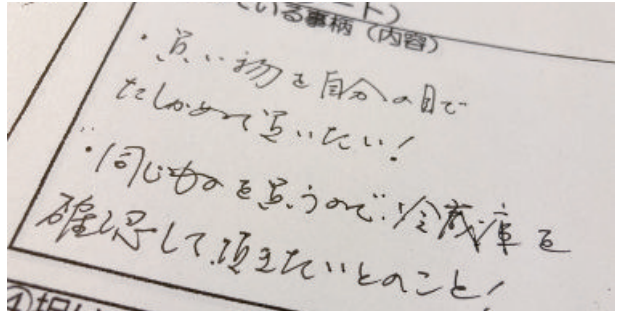 ート）
ている事柄（内容）
・買い物を自分の目で
たしかめて買いたい！
・同じものを買うので冷蔵庫を
確認して頂きたいとのこと！
①担い